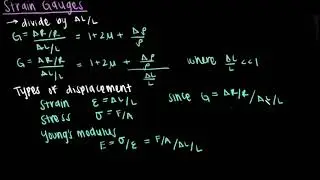 Strain Gauges
→ divide by ΔL/L
G = ΔR/R / ΔL/L = 1+2μ + Δρ/ρ
G = ΔR/R / ΔL/L = 1+2μ + Δρ/ρ / ΔL/L where ΔL/L <<1
Types of displacement
strain ε = ΔL/L since G = ΔR/R / ΔL/L
stress σ = F/A
Young's modulus
E = σ/ε = F/A / ΔL/L